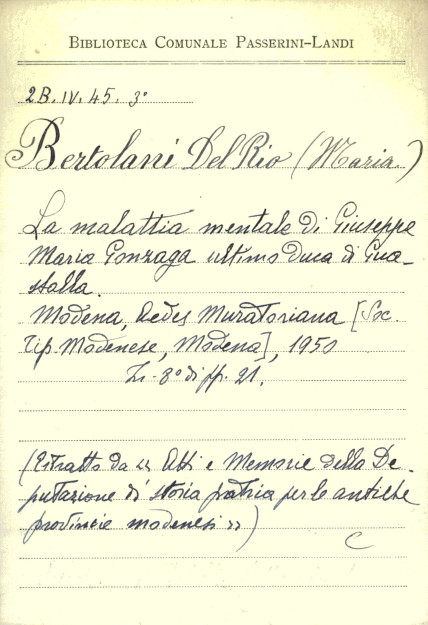 BIBLIOTECA COMUNALE PASSERINI-LANDI
2B. IV. 45. 3º
Bertolani Del Rio (Maria)
La malattia mentale di Giuseppe
Maria Gonzaga ultimo duca di Gua-
stalla.
Modena, Aedes Muratoriana [Soc.
Tip. Modenese, Modena], 1950
in-8º di pp. 21.
(Estratto da << Atti e Memorie della De-
putazione di storia patria per le antiche
provincie modenesi >>)
C